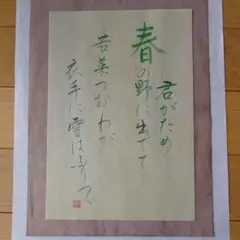 君がため
春の野に出でて
若菜つむわが
衣手に雪はふりつゝ